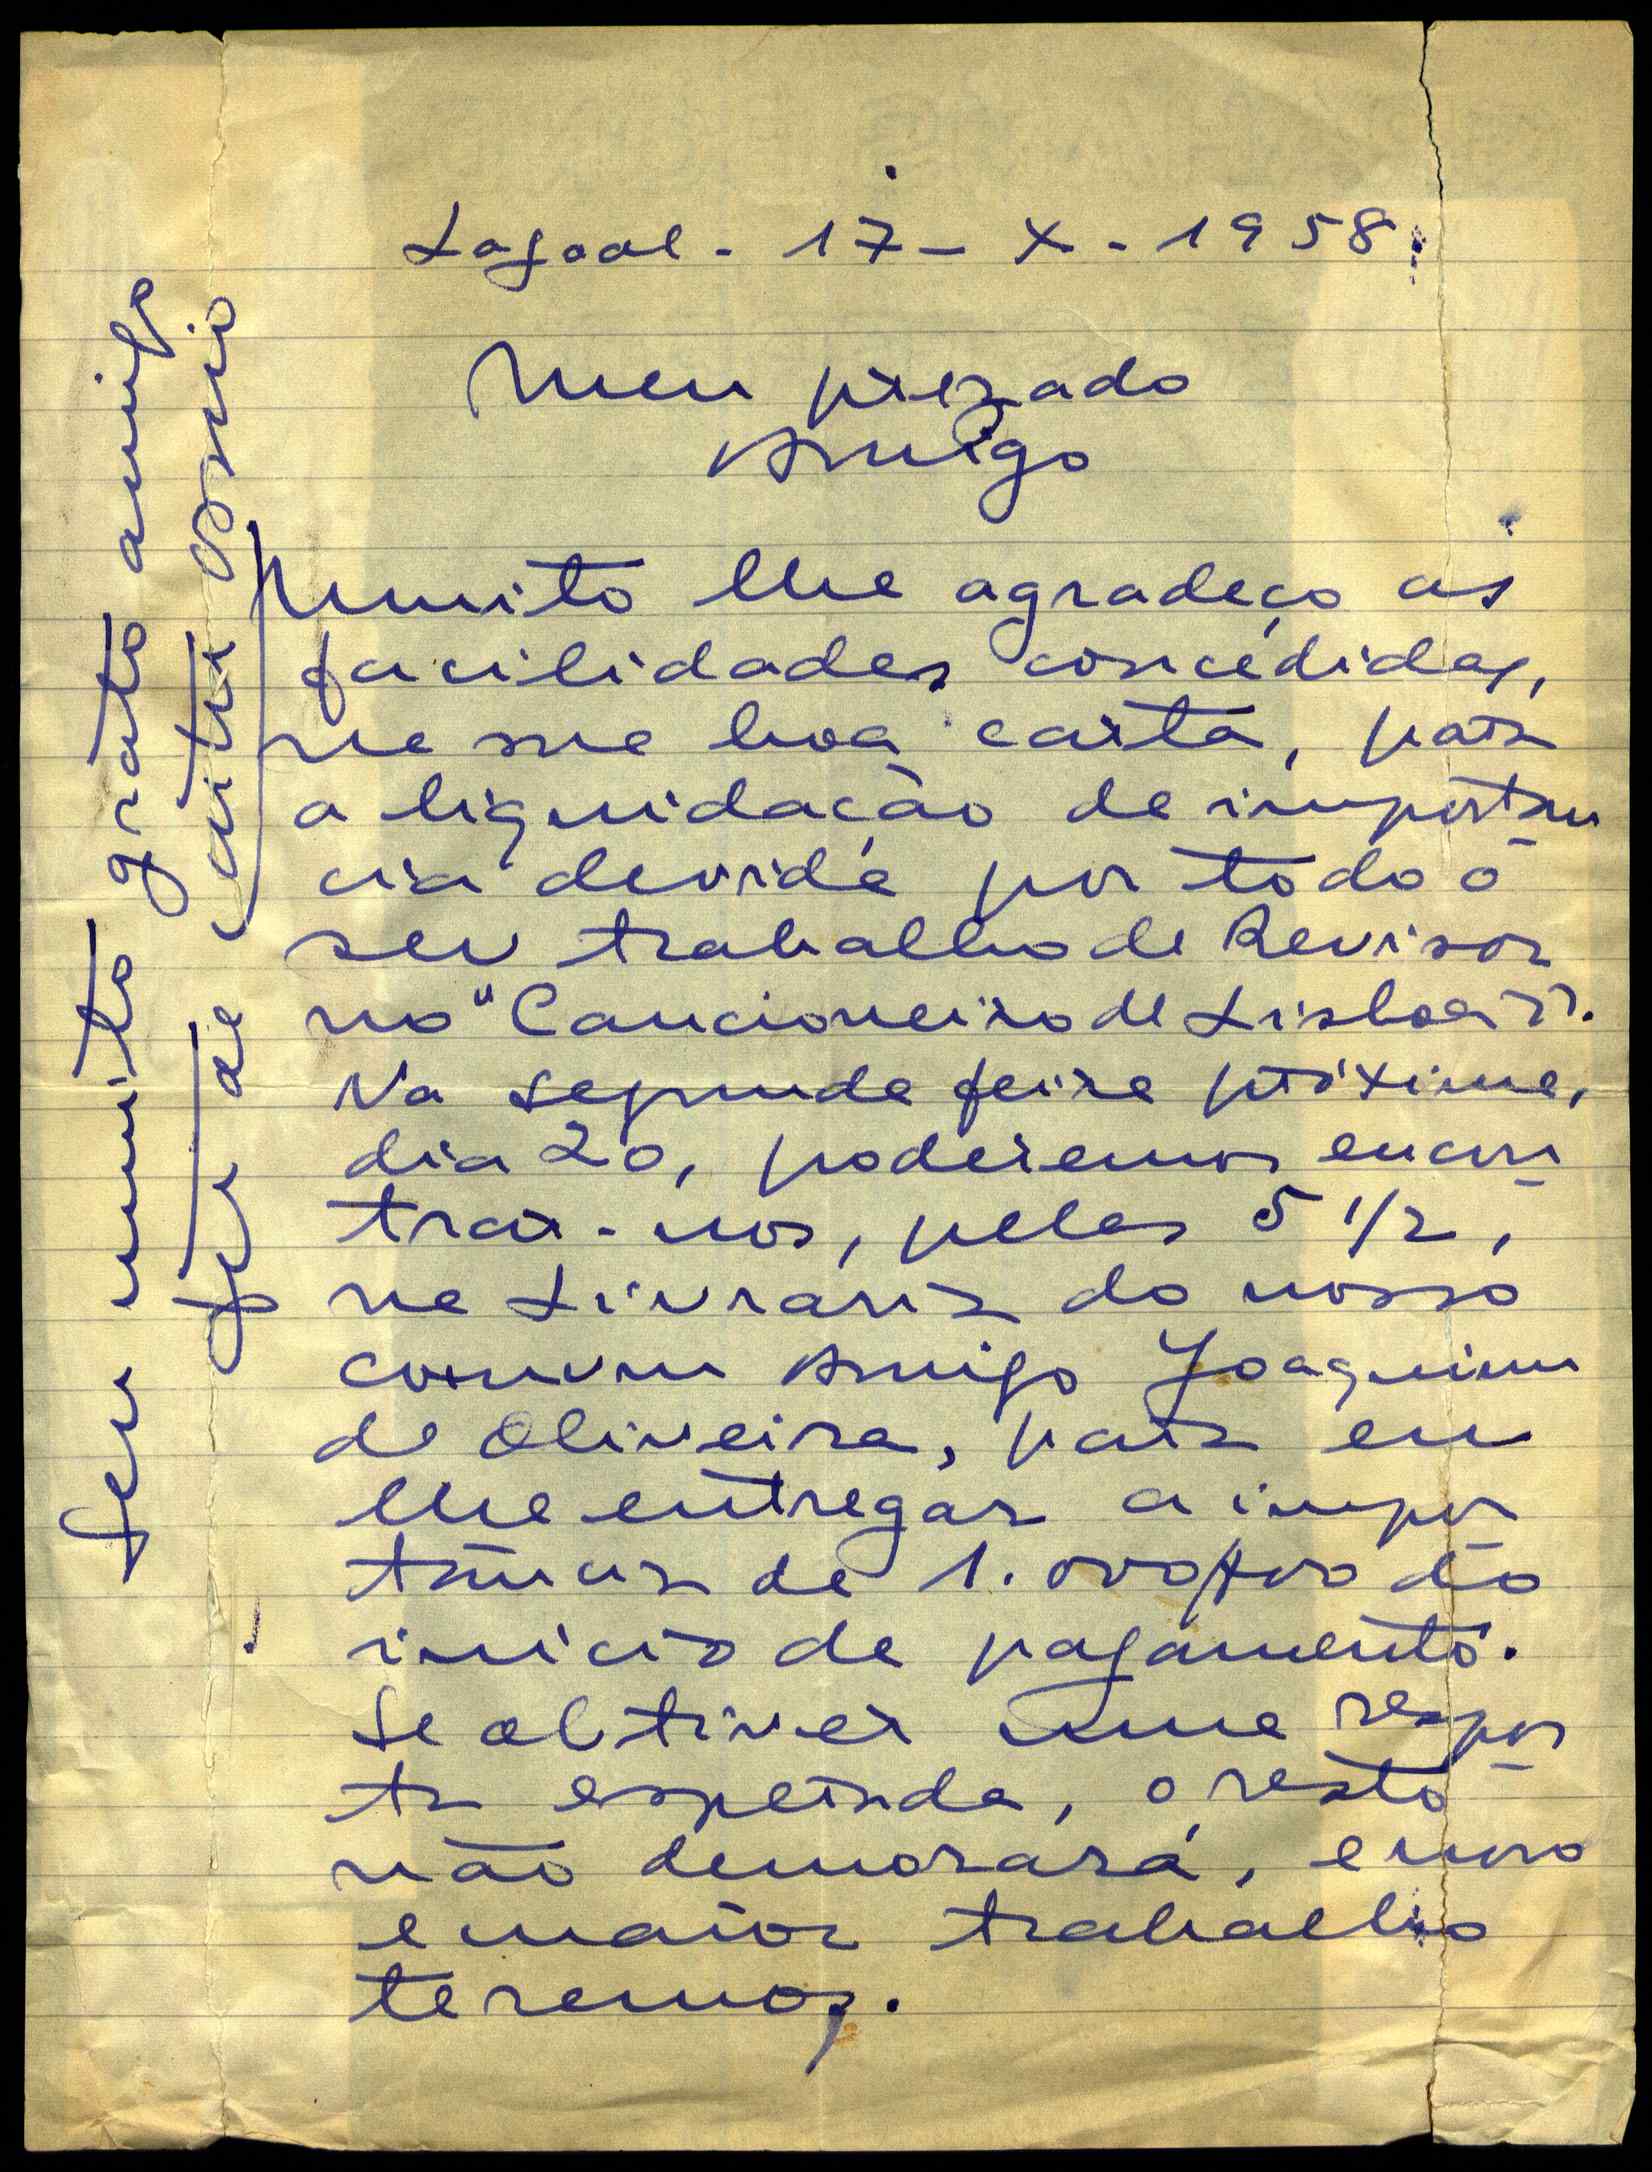 Lagoal - 17 - X - 1958.
Meu prezado
Amigo
Muito lhe agradeço as
facilidades concedidas,
na sua boa carta, para
a liquidação da importan
cia devida por todo o
seu trabalho de Revisor
no "Cancioneiro de Lisboa".
Na segunda feira próxima,
dia 20, poderemos encon
trar-nos, pelas 5 1/2,
na Livraria do nosso
comum Amigo Joaquim
de Oliveira, para eu
lhe entregar a impor
tância de 1.000$00 do
inicio de pagamento.
Se obtiver uma respos
ta esperada, o resto
não demorará, e novo
e maior trabalho
teremos.
Seu muito grato amigo
João de Castro Osório